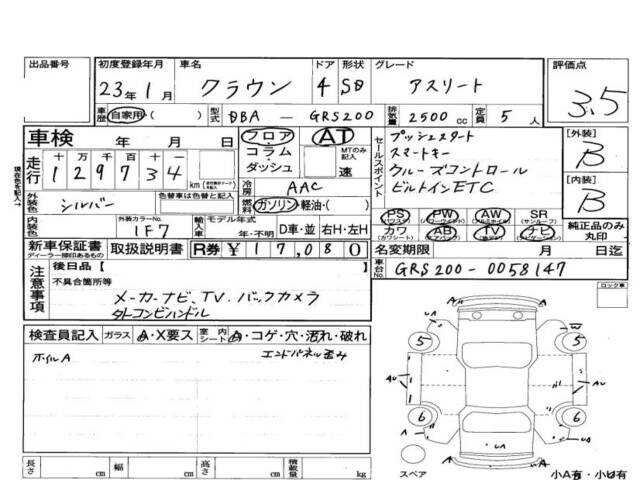 出品番号
初度登録年月 車名 ドア 形状 グレード 評価点
23年 1月 クラウン 4 SD アスリート 3.5
車歴 自家用・( ) 型式 DBA - GRS200 排気量 2500 cc 定員 5 人
車検 年 月 日
フロア・コラム・ダッシュ
AT MTのみ記入 速
セールスポイント
プッシュスタート
スマートキー
クルーズコントロール
ビルトインETC
[外装] B
[内装] B
走行 十 万 千 百 十 一
1 2 9 7 3 4 km
冷房 AAC
外装色 シルバー 色替車は色替と記入
燃料 ガソリン・軽油・( )
現在色を記入↑
PS PW AW SR
カワ AB TV ナビ
純正品のみ丸印
内装色 外装カラーNo. 1F7 輸入車 モデル年式 年・不明 D車・並 右H・左H
新車保証書 取扱説明書 R券 ¥17,080
ディーラー捺印あるもの
名変期限 月 日迄
車台No. GRS200-0058147
注意事項
後日品【
不具合箇所等
メーカーナビ、TV、バックカメラ
木目コンビハンドル
ロック車
検査員記入 ガラス A・X要ス 室内シート A・コゲ・穴・汚れ・破れ
ホイルA エンドパネル歪み
A
5 5
AU AU
6 6
A UA
スペア 小A有・小U有
長さ cm 幅 cm 高さ cm 積載量 kg